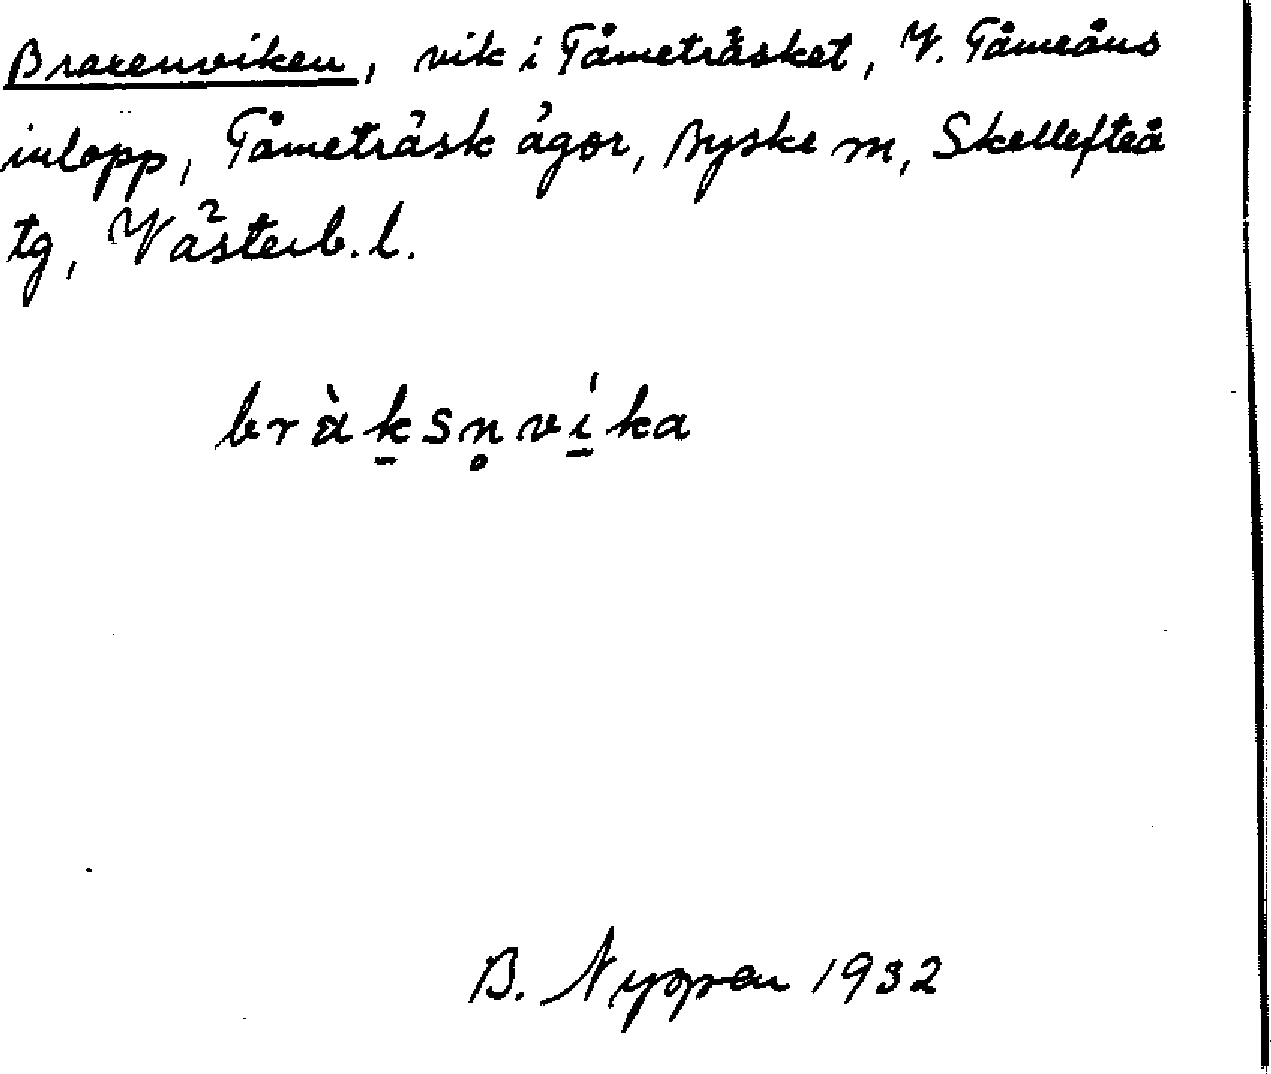 Braxenviken, vik i Tåmeträsket, V. Tåmeåns
inlopp, Tåmeträsk ägor, Byske sn, Skellefteå
tg, Västerb. l.
bràk̠sn̥ví̠ka
B. 1932